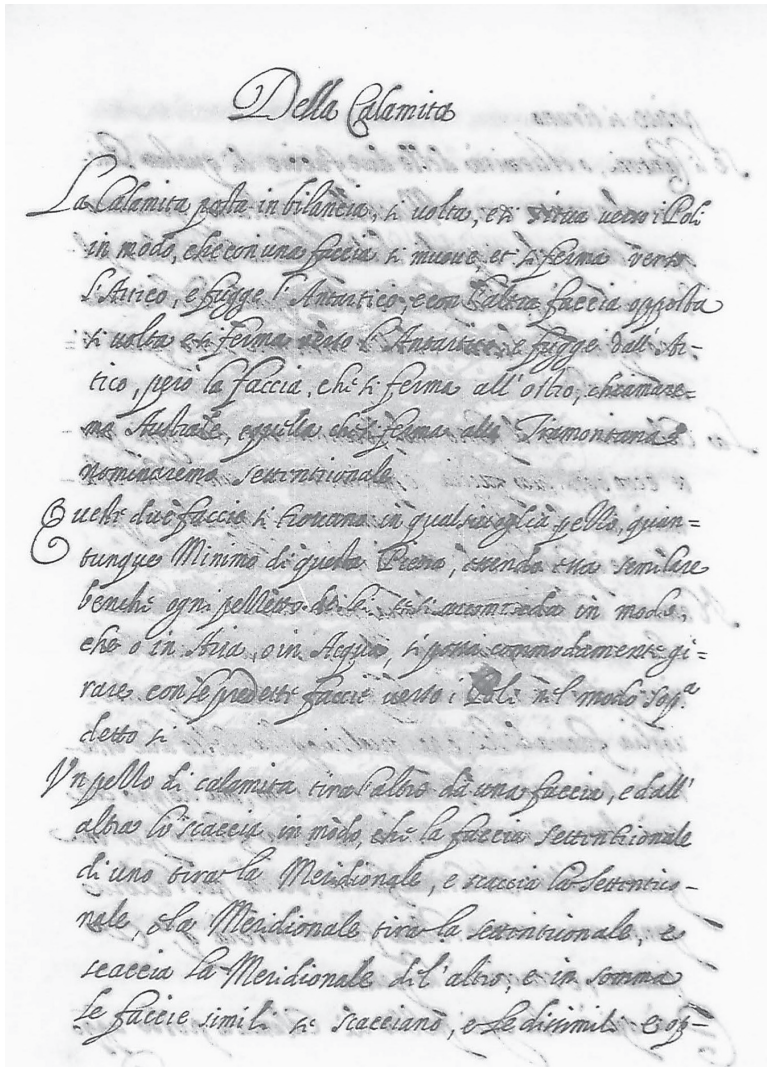 Della Calamita
La Calamita posta in bilancia, si volta, e si situa verso i Poli
in modo, che con una faccia si muove, et si ferma verso
l'Artico, e fugge l'Antartico, e con l'altra faccia opposta
si volta e si ferma verso l'Antartico, e fugge dall'Ar-
tico, però la faccia, che si ferma all'ostro, chiamare=
mo Australe, e quella che si ferma alla Tramontana
nominaremo settentrionale
Queste due faccie si trovano in qualsivoglia pezzo, quan=
tunque Minimo di questa Pietra, essendo essa similare
benche ogni pezzetto di lei, se si accomoda in modo,
che o in Aria, o in Acqua, si possa commodamente gi=
rare con le predette faccie verso i Poli nel modo sop.ª
detto si
Un pezzo di calamita tira l'altro da una faccia, e dall'
altra lo scaccia in modo, che la faccia settentrionale
di uno tira la Meridionale, e scaccia la Settentrio-
nale, e la Meridionale tira la settentrionale, e
scaccia la Meridionale dell'altro, e in somma
le faccie simili si scacciano, e le dissimili e op-